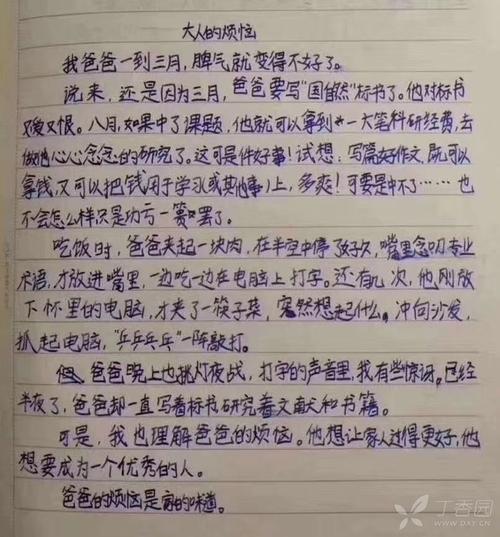 大人的烦恼
我爸爸一到三月，脾气就变得不好了。
说来，还是因为三月，爸爸要写“国自然”标书了。他对标书
又爱又恨。八月，如果中了课题，他就可以拿到一大笔科研经费，去
做他心心念念的研究了。这可是件好事！试想：写篇好作文，既可以
拿钱，又可以把钱用于学习（或其他事）上，多爽！可要是中不了……也
不会怎么样，只是功亏一篑罢了。
吃饭时，爸爸夹起一块肉，在半空中停了好久，嘴里念叨专业
术语，才放进嘴里，一边吃一边在电脑上打字。还有几次，他刚放
下怀里的电脑，才夹了一筷子菜，突然想起什么。冲向沙发，
抓起电脑，“乒乒乓乓”一阵敲打。
爸爸晚上也挑灯夜战，打字的声音里，我有些惊讶。已经
半夜了，爸爸却一直写着标书，研究着文献和书籍。
可是，我也理解爸爸的烦恼。他想让家人过得更好，他
想要成为一个优秀的人。
爸爸的烦恼是家的味道。
丁香园
WWW.DXY.CN